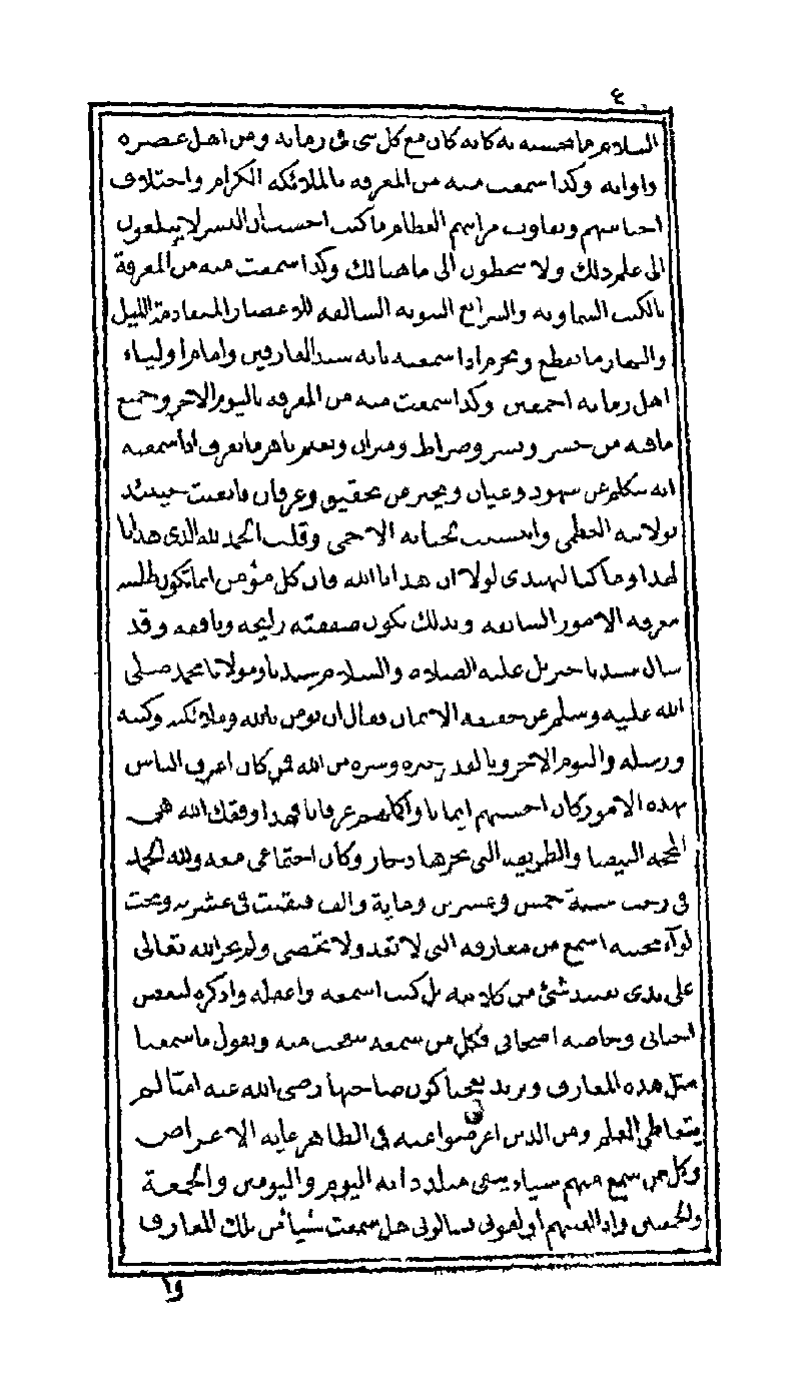 ٤
السلام ما تحسبه به كانه كان مع كل نبي في زمانه ومن اهل عصره
واوانه وكذا سمعت منه من المعرفة بالملائكة الكرام واختلاف
اجناسهم وتفاوت مراتبهم العظام ما كنت احسب ان البشر لا يبلغون
الى علم ذلك ولا يتخطون الى ما هنالك وكذا سمعت منه من المعرفة
بالكتب السماوية والشرائع النبوية السالفة للاعصار المتقادمة الليل
والنهار ما تقطع وتجزم اذا سمعته بانه سيد العارفين وامام اولياء
اهل زمانه اجمعين وكذا سمعت منه من المعرفة باليوم الآخر وجميع
ما فيه من حشر ونشر وصراط وميزان ونعيم باهر ما تعرف اذا سمعته
انه يتكلم عن شهود وعيان ويخبر عن تحقيق وعرفان فايقنت حينئذ
بولايته العظمى وانتسبت لجنابه الاحمى وقلت الحمد لله الذي هدانا
لهذا وما كنا لنهتدي لولا ان هدانا الله فان كل مؤمن انما تكون طلبته
معرفة الامور السابقة وبذلك تكون صفقته رابحة ونافعة وقد
سال سيدنا جبريل عليه الصلاة والسلام سيدنا ومولانا محمد صلى
الله عليه وسلم عن حقيقة الايمان فقال ان تومن بالله وملائكته وكتبه
ورسله واليوم الآخر وبالقدر خيره وشره من الله فمن كان اعرف الناس
بهذه الامور كان احسنهم ايمانا واكملهم عرفانا فهذا وفقك الله هي
المحجة البيضا والطريقة التي بحرها زخار وكان اجتماعي معه ولله الحمد
في رجب سنة خمس وعشرين وماية والف فبقيت في عشرته وتحت
لواء محبته اسمع من معارفه التي لا تعد ولا تحصى ولم يجر الله تعالى
على يدي تقييد شئ من كلامه بل كنت اسمعه واعقله واذكره لبعض
احبابي وخاصة اصحابي فكل من سمعه يتعجب منه ويقول ما سمعنا
مثل هذه المعارف ويزيد تعجبا كون صاحبها رضي الله عنه اميا لم
يتعاطى العلم ومن الذين اعرضوا عنه في الظاهر غاية الاعراض
وكل من سمع منهم شيا يبقى متلذذا به اليوم واليومين والجمعة
والجمعتين واذا لقيتهم أو لقوني يسالوني هل سمعت شيا من تلك المعارف
وا